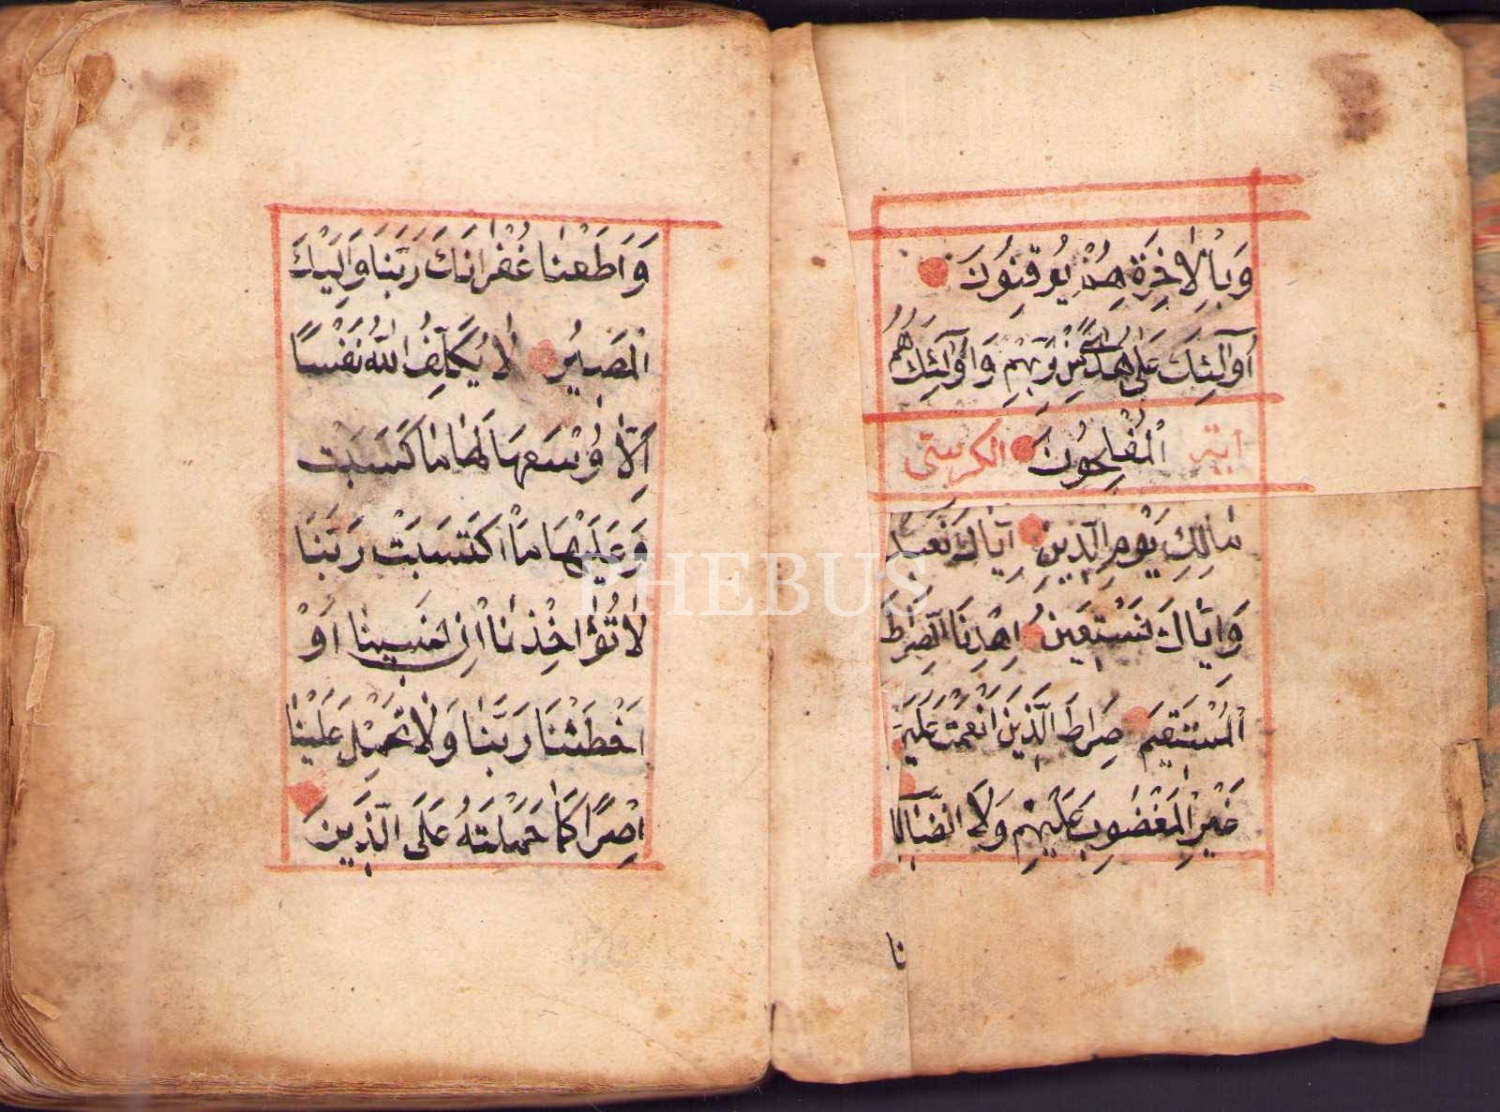 وَبِالْاٰخِرَةِ هُمْ يُوقِنُونَ
اُولٰئِكَ عَلٰى هُدًى مِنْ رَبِّهِمْ وَاُولٰئِكَ هُمُ
اٰيَة الْمُفْلِحُونَ الكرسى
مَالِكِ يَوْمِ الدِّينِ اِيَّاكَ نَعْبُدُ
وَاِيَّاكَ نَسْتَعِينُ اِهْدِنَا الصِّرَاطَ
الْمُسْتَقِيمَ صِرَاطَ الَّذِينَ اَنْعَمْتَ عَلَيْهِمْ
غَيْرِ الْمَغْضُوبِ عَلَيْهِمْ وَلَا الضَّالّ
نا
وَاَطَعْنَا غُفْرَانَكَ رَبَّنَا وَاِلَيْكَ
الْمَصِيرُ لَا يُكَلِّفُ اللّٰهُ نَفْسًا
اِلَّا وُسْعَهَا لَهَا مَا كَسَبَتْ
وَعَلَيْهَا مَا اكْتَسَبَتْ رَبَّنَا
لَا تُؤَاخِذْنَا اِنْ نَسِينَا اَوْ
اَخْطَئْنَا رَبَّنَا وَلَا تَحْمِلْ عَلَيْنَا
اِصْرًا كَمَا حَمَلْتَهُ عَلَى الَّذِينَ
PHEBUS